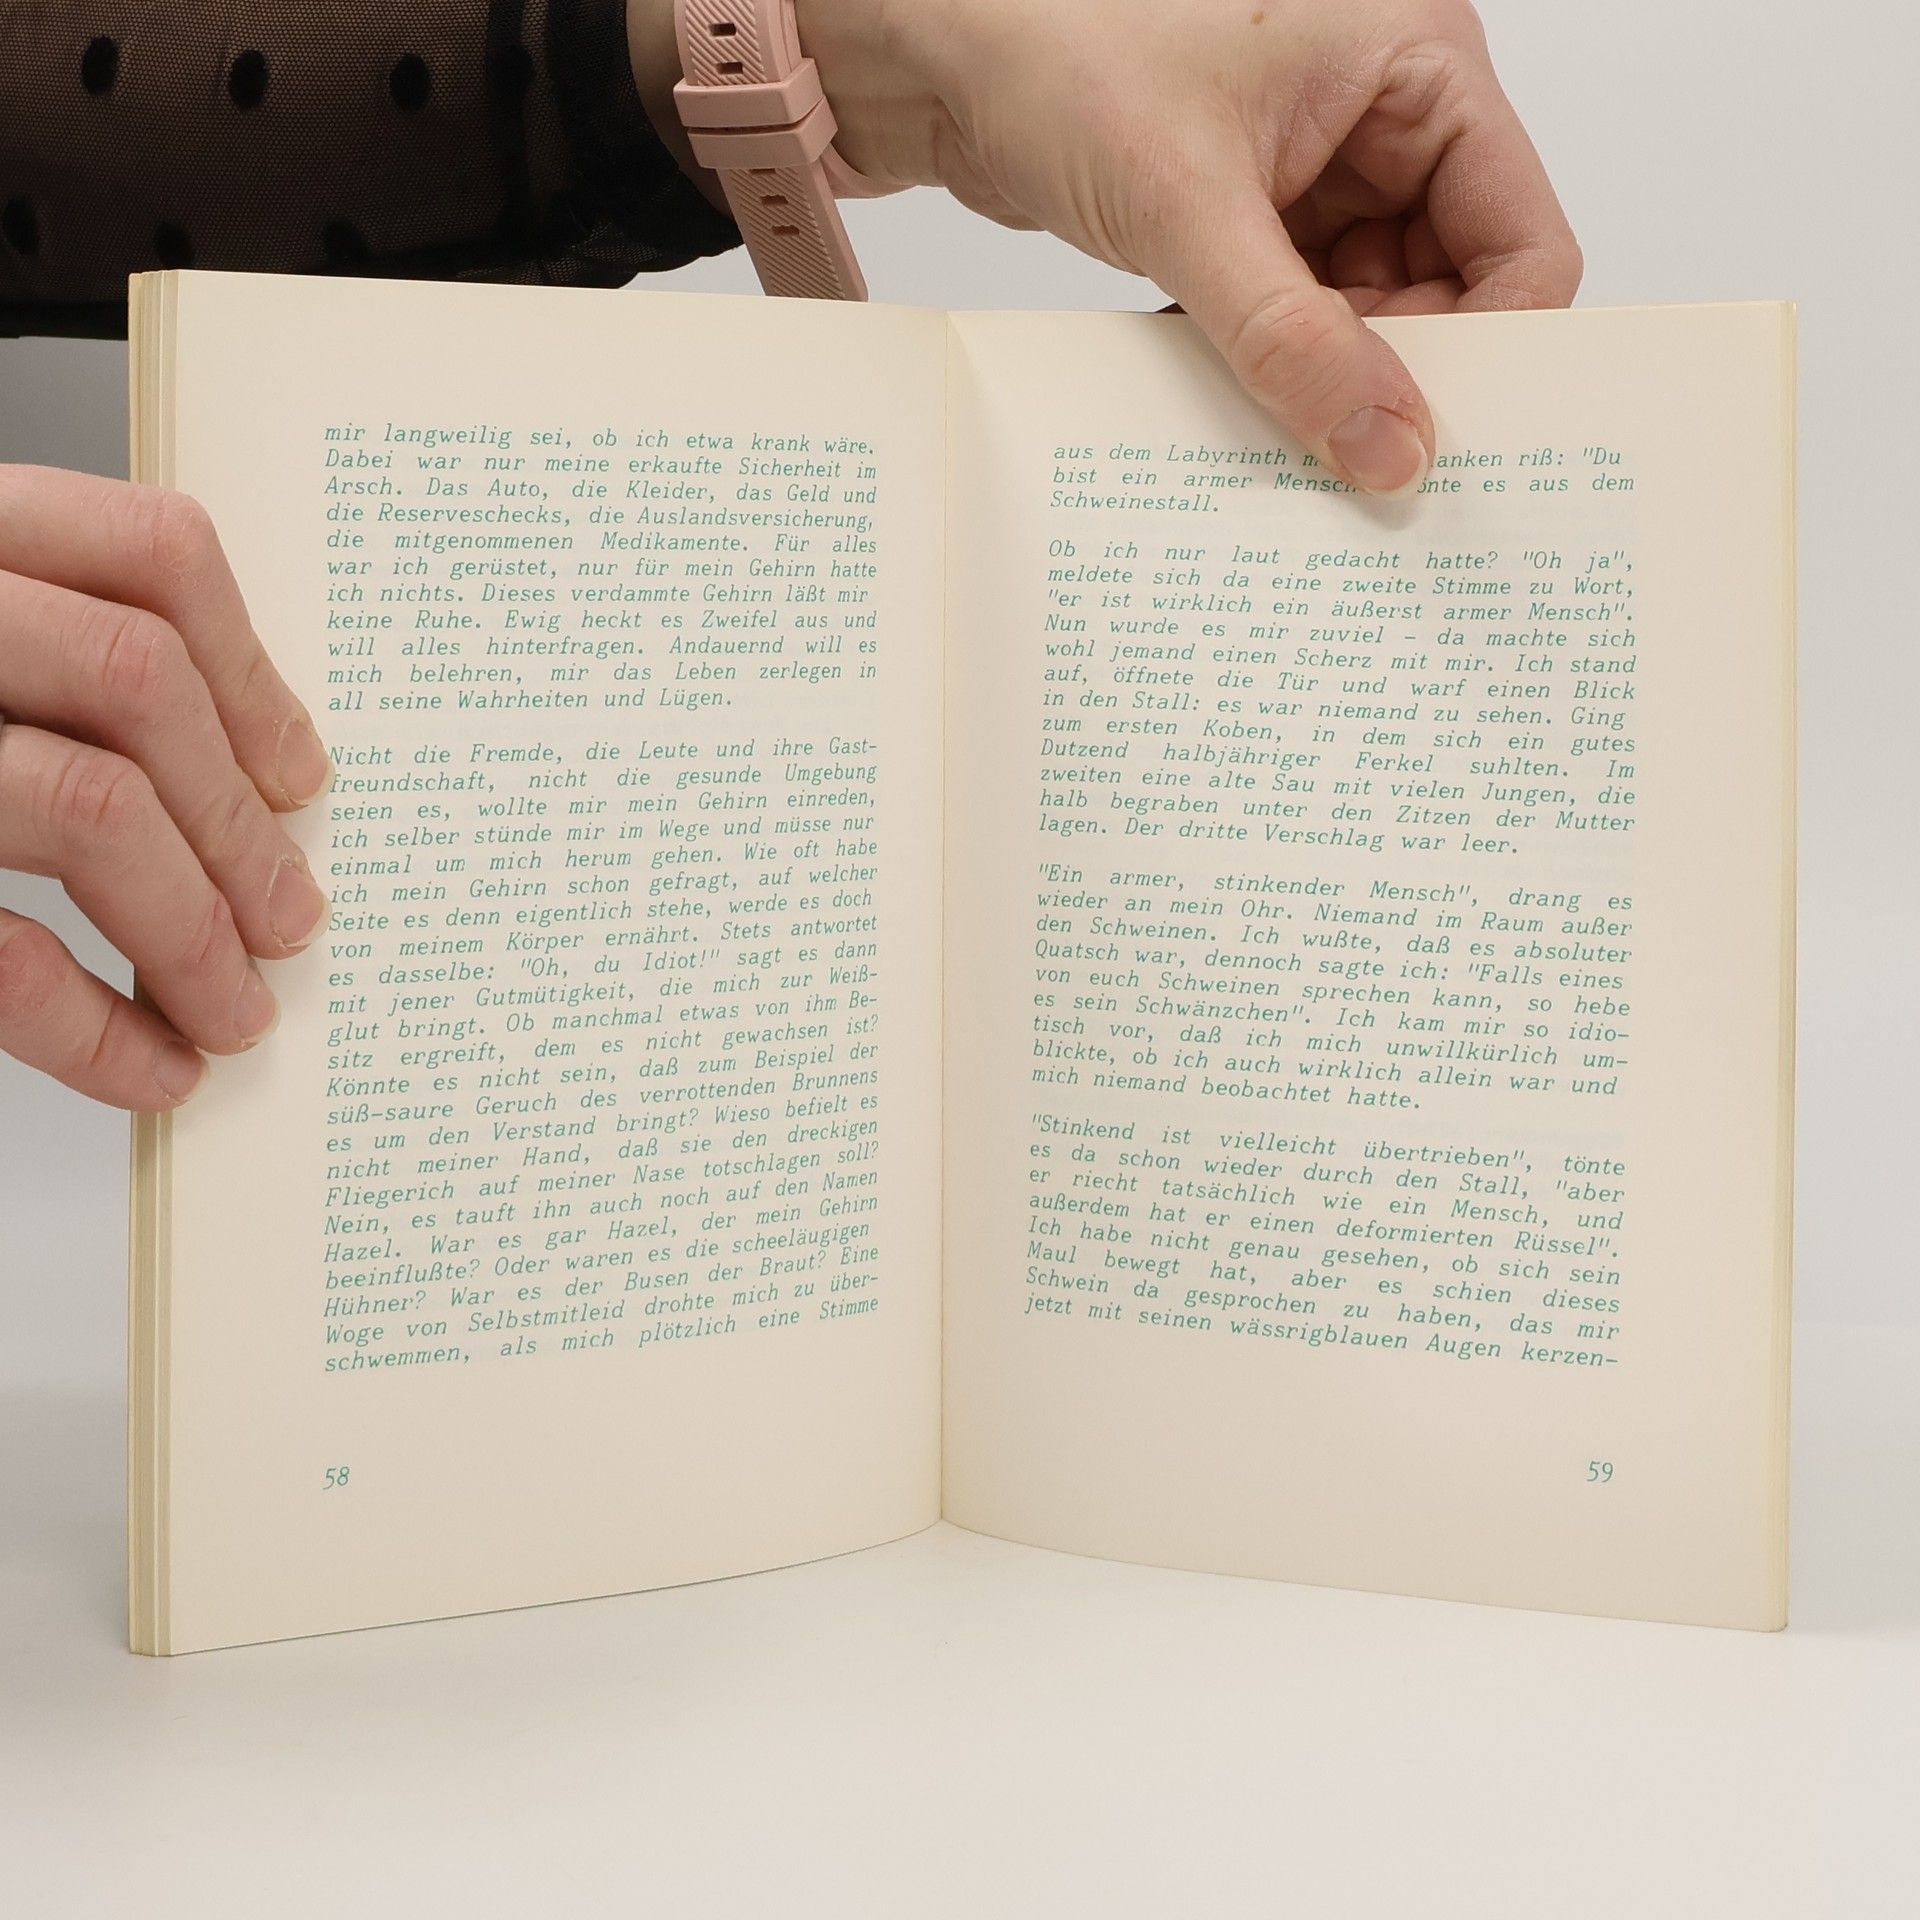 mir langweilig sei, ob ich etwa krank wäre.
Dabei war nur meine erkaufte Sicherheit im
Arsch. Das Auto, die Kleider, das Geld und
die Reserveschecks, die Auslandsversicherung,
die mitgenommenen Medikamente. Für alles
war ich gerüstet, nur für mein Gehirn hatte
ich nichts. Dieses verdammte Gehirn läßt mir
keine Ruhe. Ewig heckt es Zweifel aus und
will alles hinterfragen. Andauernd will es
mich belehren, mir das Leben zerlegen in
all seine Wahrheiten und Lügen.
Nicht die Fremde, die Leute und ihre Gast-
freundschaft, nicht die gesunde Umgebung
seien es, wollte mir mein Gehirn einreden,
ich selber stünde mir im Wege und müsse nur
einmal um mich herum gehen. Wie oft habe
ich mein Gehirn schon gefragt, auf welcher
Seite es denn eigentlich stehe, werde es doch
von meinem Körper ernährt. Stets antwortet
es dasselbe: "Oh, du Idiot!" sagt es dann
mit jener Gutmütigkeit, die mich zur Weiß-
glut bringt. Ob manchmal etwas von ihm Be-
sitz ergreift, dem es nicht gewachsen ist?
Könnte es nicht sein, daß zum Beispiel der
süß-saure Geruch des verrottenden Brunnens
es um den Verstand bringt? Wieso befielt es
nicht meiner Hand, daß sie den dreckigen
Fliegerich auf meiner Nase totschlagen soll?
Nein, es tauft ihn auch noch auf den Namen
Hazel. War es gar Hazel, der mein Gehirn
beeinflußte? Oder waren es die scheeläugigen
Hühner? War es der Busen der Braut? Eine
Woge von Selbstmitleid drohte mich zu über-
schwemmen, als mich plötzlich eine Stimme
58
aus dem Labyrinth anken riß: "Du
bist ein armer Mensch önte es aus dem
Schweinestall.
Ob ich nur laut gedacht hatte? "Oh ja",
meldete sich da eine zweite Stimme zu Wort,
"er ist wirklich ein äußerst armer Mensch".
Nun wurde es mir zuviel - da machte sich
wohl jemand einen Scherz mit mir. Ich stand
auf, öffnete die Tür und warf einen Blick
in den Stall: es war niemand zu sehen. Ging
zum ersten Koben, in dem sich ein gutes
Dutzend halbjähriger Ferkel suhlten. Im
zweiten eine alte Sau mit vielen Jungen, die
halb begraben unter den Zitzen der Mutter
lagen. Der dritte Verschlag war leer.
"Ein armer, stinkender Mensch", drang es
wieder an mein Ohr. Niemand im Raum außer
den Schweinen. Ich wußte, daß es absoluter
Quatsch war, dennoch sagte ich: "Falls eines
von euch Schweinen sprechen kann, so hebe
es sein Schwänzchen". Ich kam mir so idio-
tisch vor, daß ich mich unwillkürlich um-
blickte, ob ich auch wirklich allein war und
mich niemand beobachtet hatte.
"Stinkend ist vielleicht übertrieben", tönte
es da schon wieder durch den Stall, "aber
er riecht tatsächlich wie ein Mensch, und
außerdem hat er einen deformierten Rüssel".
Ich habe nicht genau gesehen, ob sich sein
Maul bewegt hat, aber es schien dieses
Schwein da gesprochen zu haben, das mir
jetzt mit seinen wässrigblauen Augen kerzen-
59